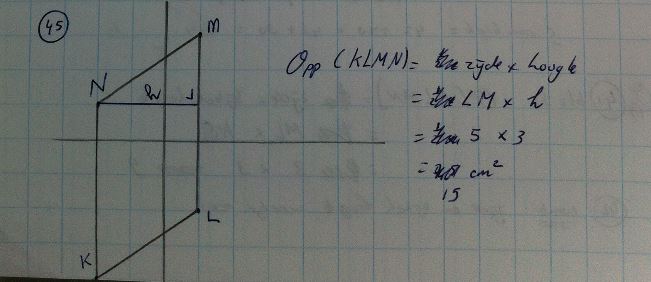 45
M
N
h
L
K
Opp (KLMN) = zijde x hoogte
= LM x h
= 5 x 3
= cm²
15